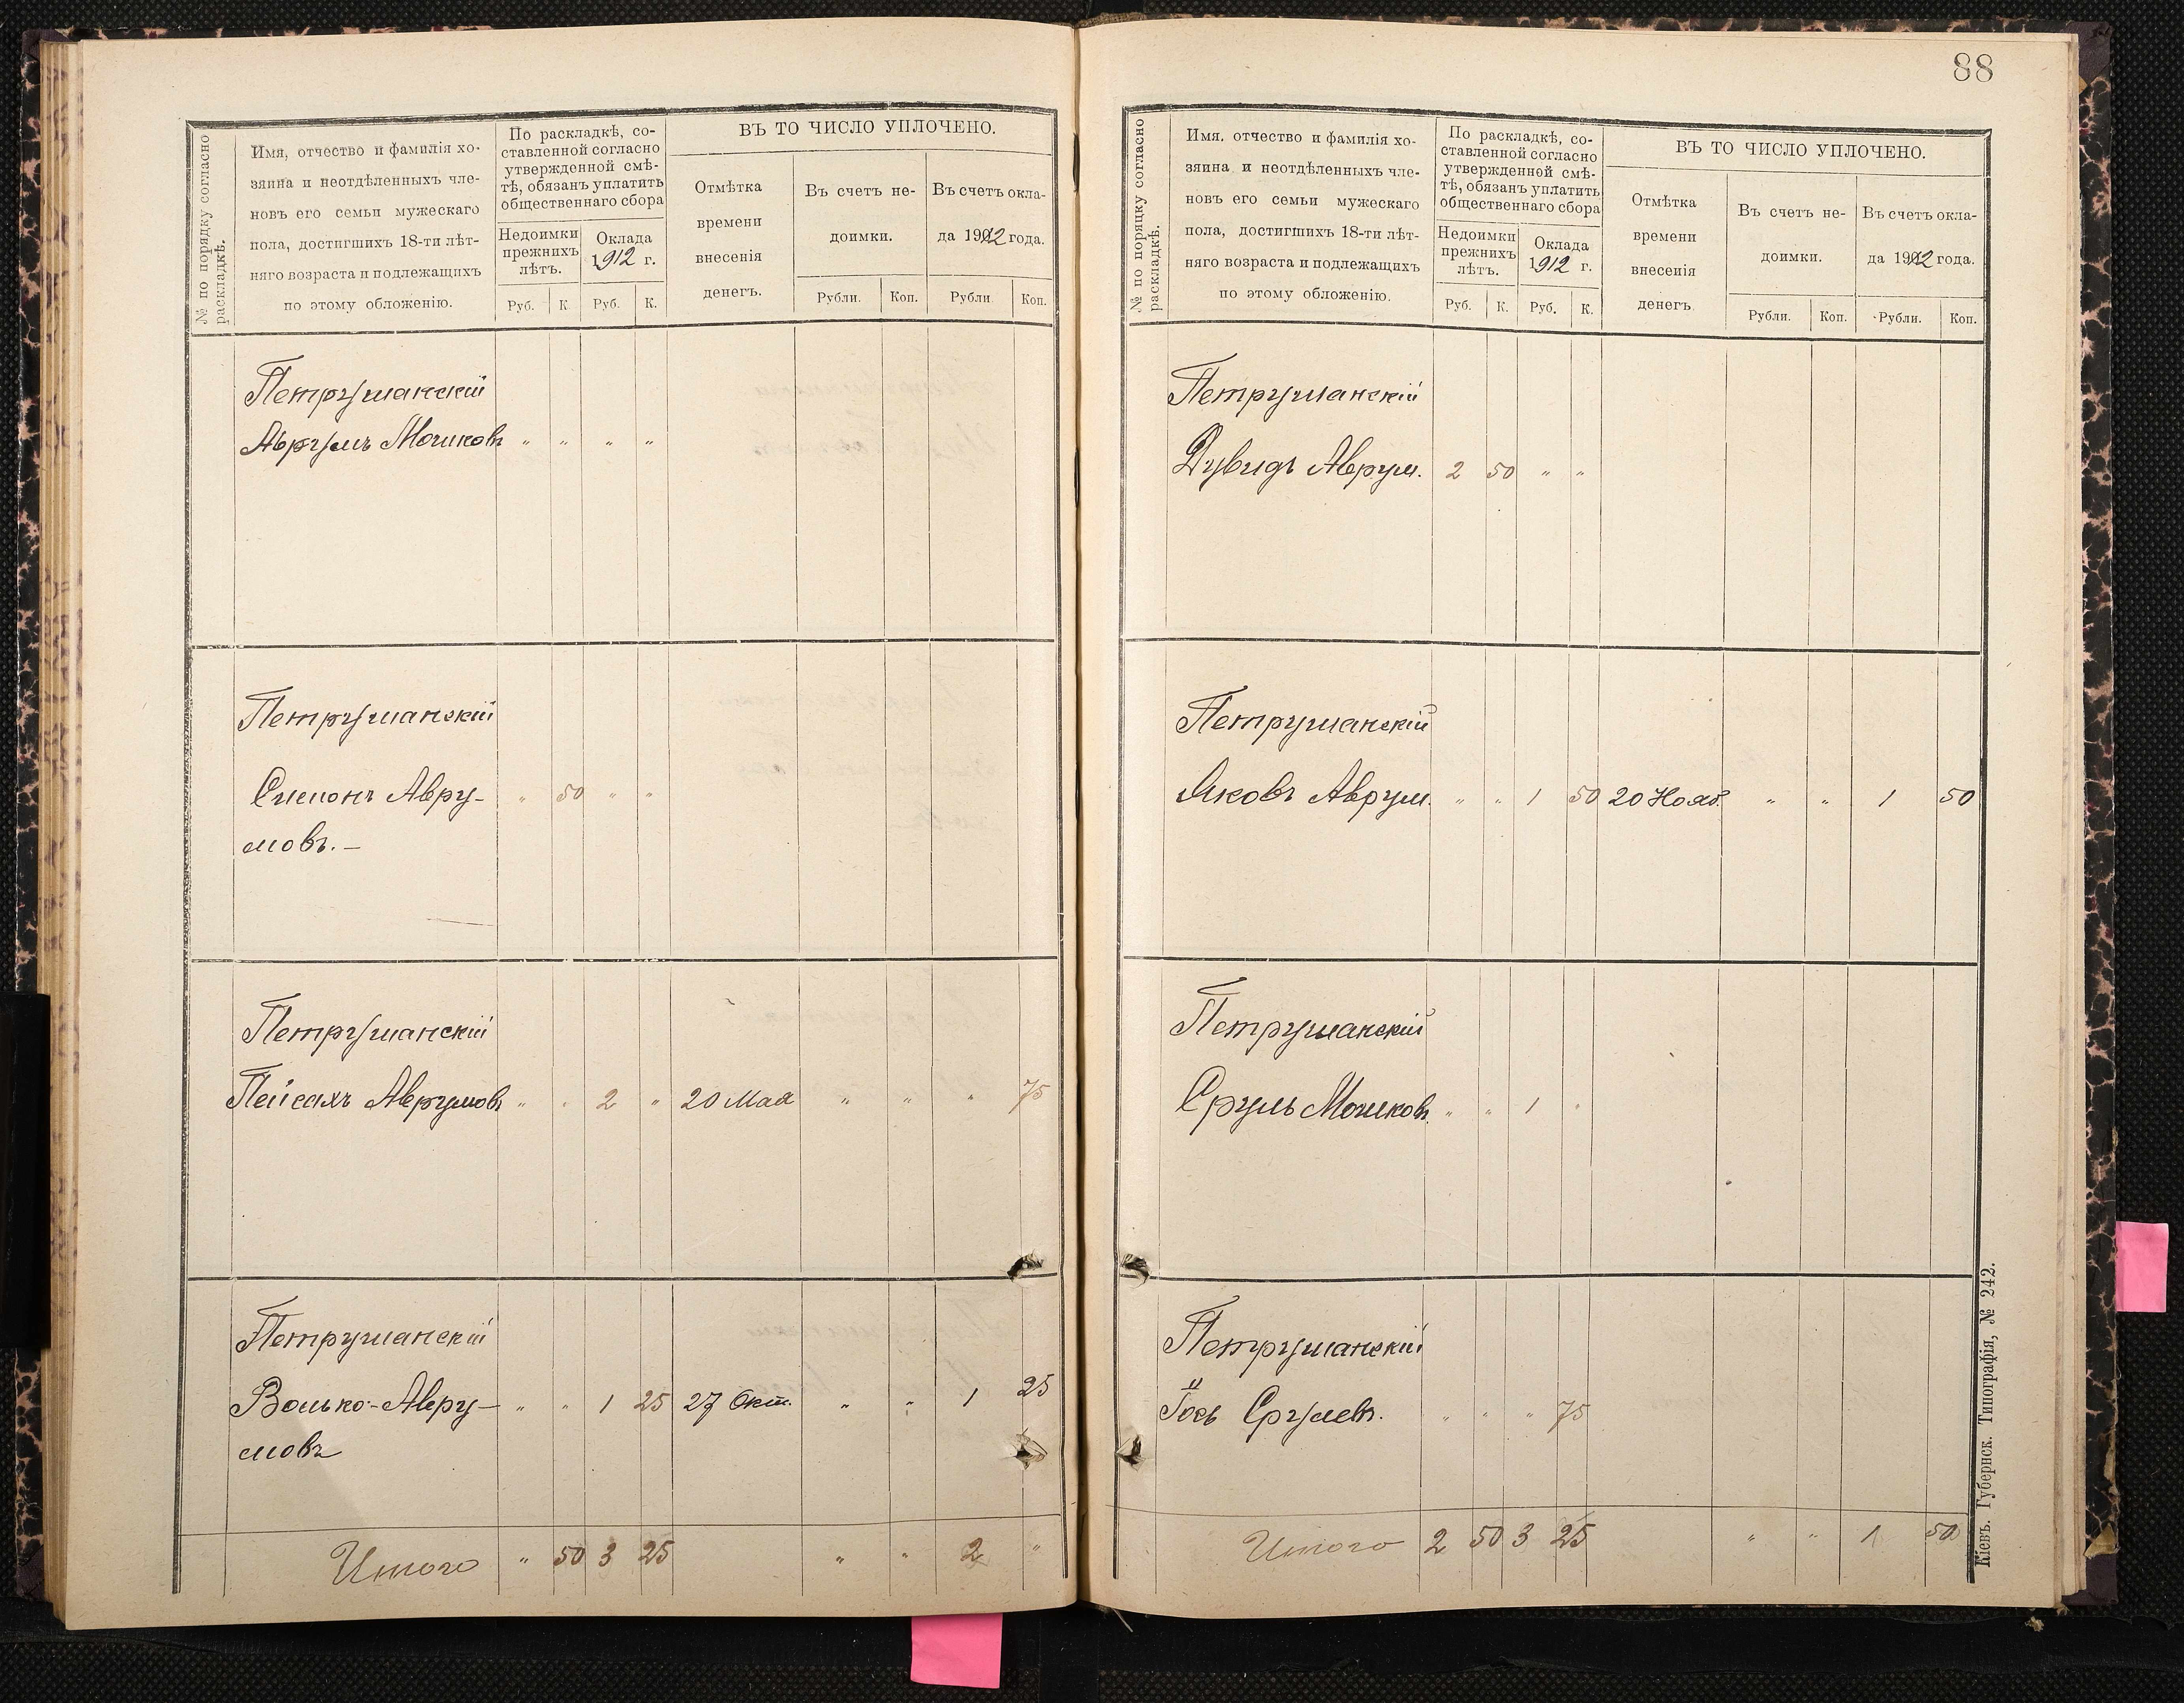 № по порядку согласно
раскладкѣ.
Имя, отчество и фамилія хо-
зяина и неотдѣленныхъ чле-
новъ его семьи мужескаго
пола, достигшихъ 18-ти лѣт-
няго возраста и подлежащихъ
по этому обложенію.
По раскладкѣ, со-
ставленной согласно
утвержденной смѣ-
тѣ, обязанъ уплатить
общественнаго сбора
Недоимки
прежнихъ
лѣтъ.
Оклада
1912 г.
Руб. К. Руб. К.
ВЪ ТО ЧИСЛО УПЛОЧЕНО.
Отмѣтка
времени
внесенія
денегъ.
Въ счетъ не-
доимки.
Въ счетъ окла-
да 1912 года.
Рубли. Коп. Рубли. Коп.
Петрушанскій
Аврумъ Мошковъ " " " "
Петрушанскій
Симонъ Авру- " 50 " "
мовъ. —
Петрушанскій
Пейсахъ Аврумовъ " " 2 " 20 Мая " " " 75
Петрушанскій
Волько-Авру- " " 1 25 27 Окт. " " 1 25
мовъ
Итого " 50 3 25 " " 2 "
88
№ по порядку согласно
раскладкѣ.
Имя. отчество и фамилія хо-
зяина и неотдѣленныхъ чле-
новъ его семьи мужескаго
пола, достигшихъ 18-ти лѣт-
няго возраста и подлежащихъ
по этому обложенію.
По раскладкѣ, со-
ставленной согласно
утвержденной смѣ-
тѣ, обязанъ уплатить
общественнаго сбора
Недоимки
прежнихъ
лѣтъ.
Оклада
1912 г.
Руб. К. Руб. К.
ВЪ ТО ЧИСЛО УПЛОЧЕНО.
Отмѣтка
времени
внесенія
денегъ
Въ счетъ не-
доимки.
Въ счетъ окла-
да 1912 года.
Рубли. Коп. Рубли. Коп.
Петрушанскій
Дувидъ Аврум. 2 50 " "
Петрушанскій
Яковъ Аврум. " " 1 50 20 Нояб. " " 1 50
Петрушанскій
Сруль Мошковъ " " 1 "
Петрушанскій
Іось Срулевъ. " " " 75
Итого 2 50 3 25 " " 1 50
Кіевъ. Губернск. Типографія, № 242.